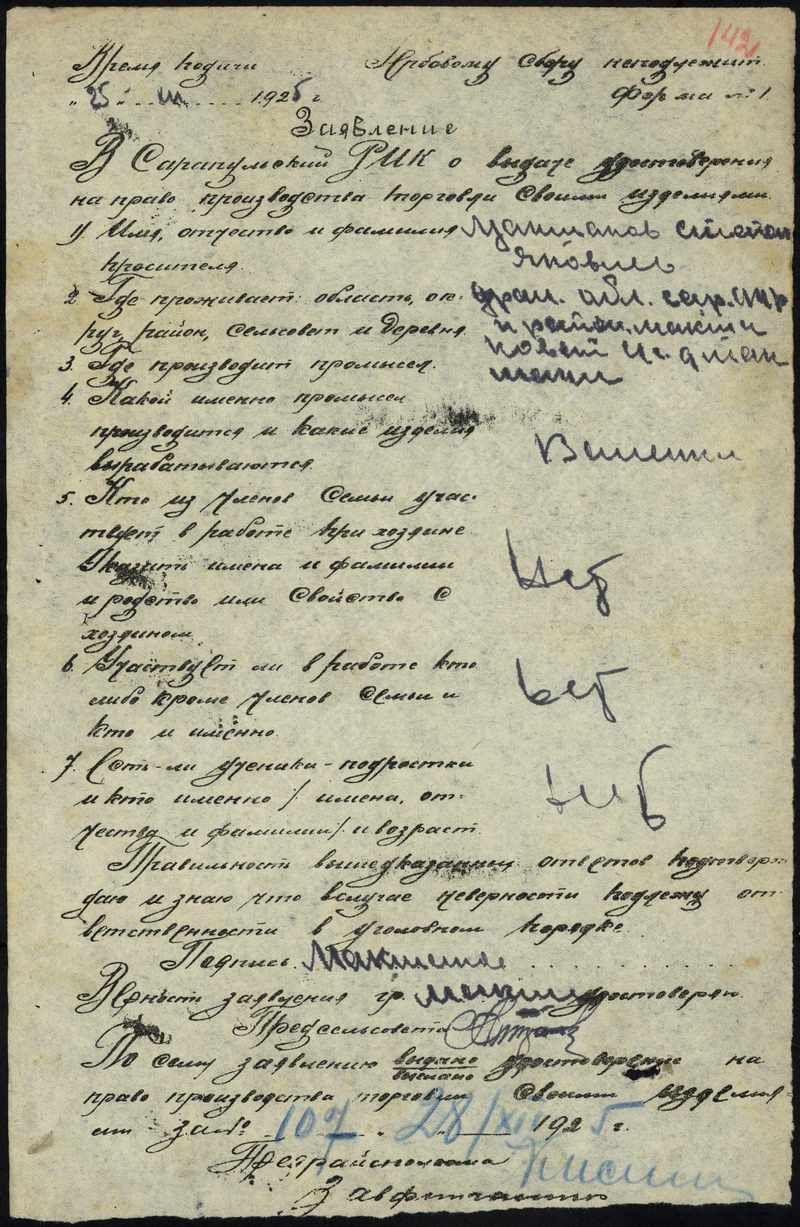 142
Время подачи Гербовому сбору неподлежит
"25" III 1925 г. Форма № 1
Заявление
В Сарапульский РИК о выдаче удостоверения
на право производства торговли своими изделиями.
1) Имя, отчество и фамилия Макшаков Степан
просителя. Яковлев
2. Где проживает: область, ок- Урал. обл. сар. окр
руг, район, сельсовет и деревня. и район. макша
3. Где производит промысел. ковский
4. Какой именно промысел
производится и какие изделия
вырабатываются.
5. Кто из членов семьи учас-
твует в работе при хозяине
Указать имена и фамилии Нет
и родство или свойство с
хозяином
6. Участвует ли в работе кто
либо кроме членов семьи и нет
кто и именно.
7. Есть-ли ученики-подростки
и кто именно /имена, от- нет
чества и фамилии/ и возраст.
Правильность вышеуказанных ответов подтверж-
даю и знаю что вслучае неверности подлежу от-
ветственности в уголовном порядке.
Подпись
Верность заявления гр. удостоверяю.
Предсельсовета
По сему заявлению выдано удостоверение на
выслано
право производства торговли своими изделия-
ми за № 107 "28/XII 1925 г.
Предрайисполкома
Завфинчастью